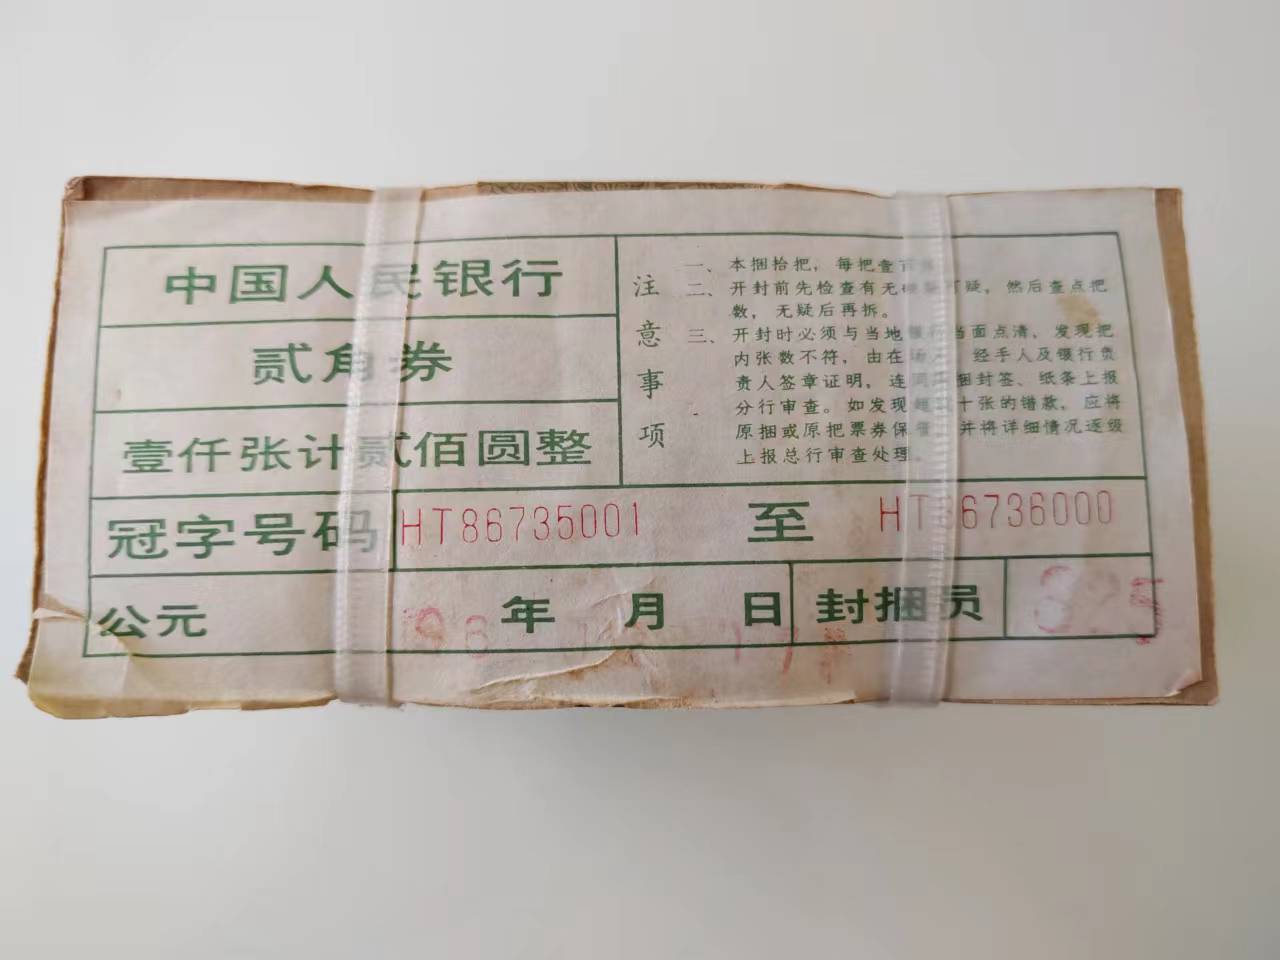 中国人民银行
贰角券
壹仟张计贰佰圆整
注意事项
一、本捆拾把，每把壹百
二、开封前先检查有无 可疑，然后查点把
数，无疑后再拆。
三、开封时必须与当地银行当面点清，发现把
内张数不符，由在场 经手人及银行负
责人签章证明，连同 捆封签、纸条上报
分行审查。如发现 十张的错款，应将
原捆或原把票券保 并将详细情况逐级
上报总行审查处理。
冠字号码 HT86735001 至 HT86736000
公元 年 月 日 封捆员